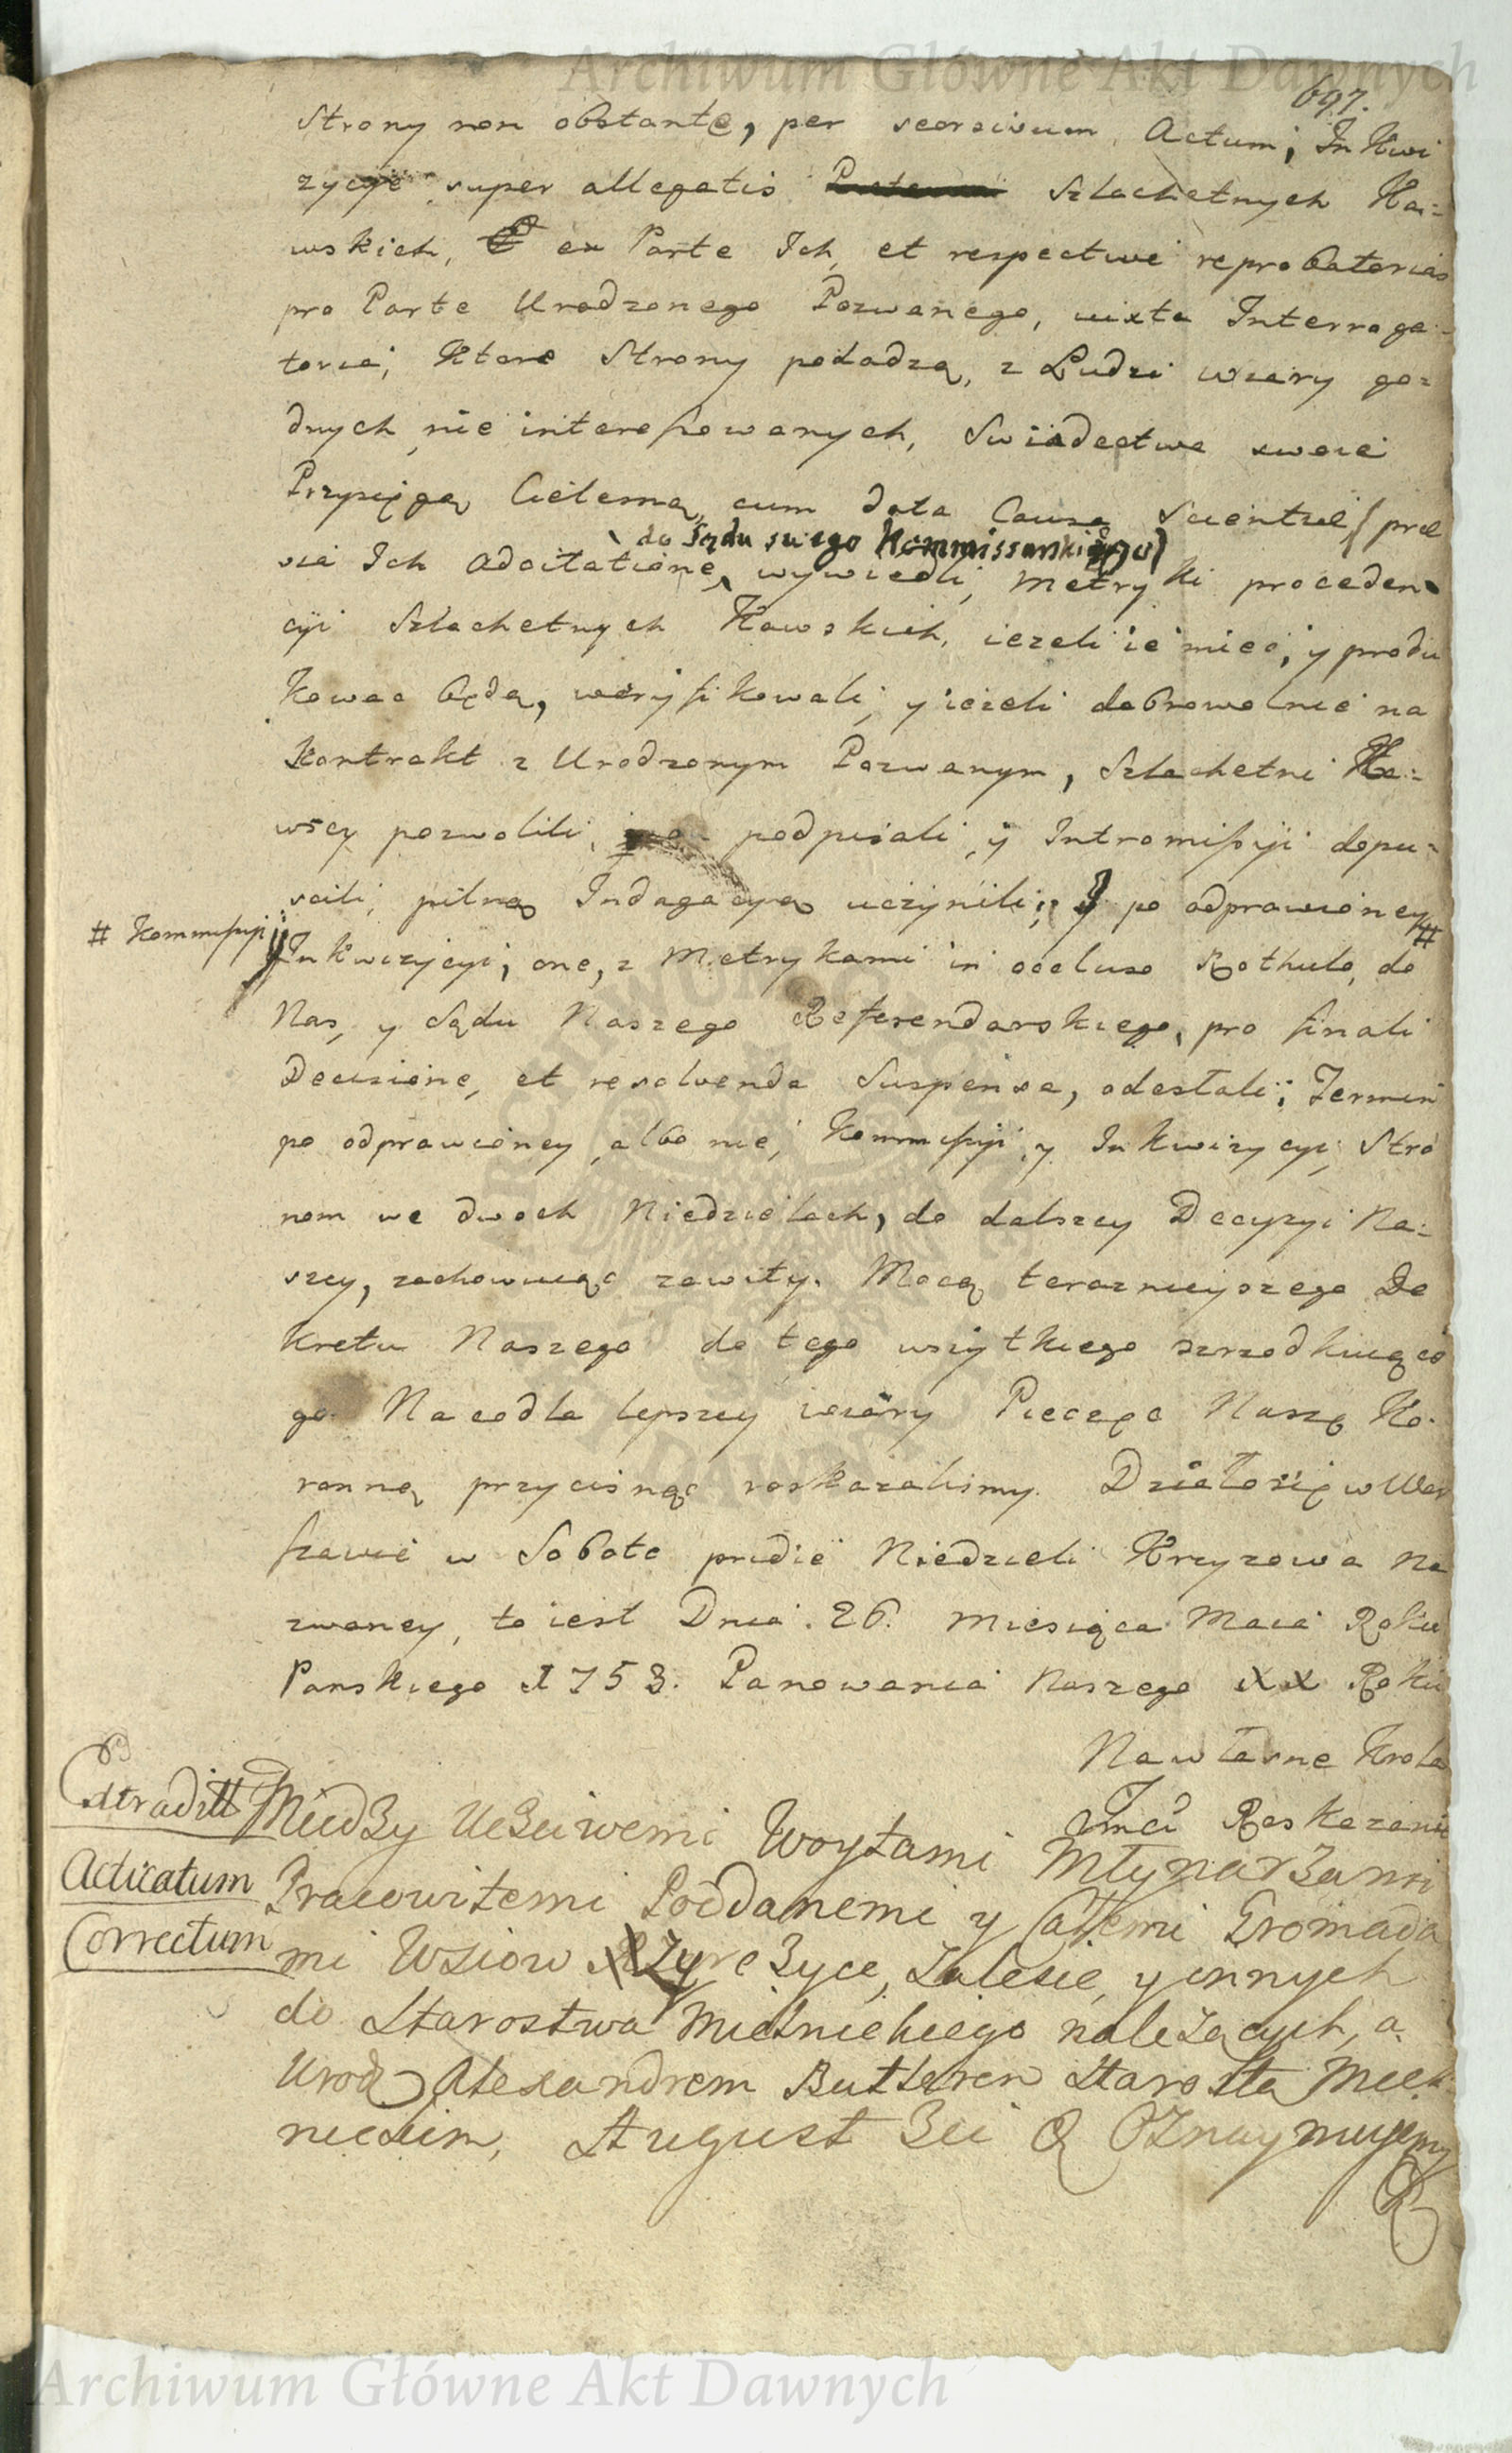 Archiwum Główne Akt Dawnych
697.
Strony non obstante, per seorsivum Actum; Inkwi
zycye super allegatis Szlachetnych Ka=
wskich, ex Parte Ich, et respective reprobatorias
pro Parte Urodzonego Pozwanego, iuxta Interroga=
toria, ktore Strony podadzą, z Ludzi wiary go=
dnych, nie interessowanych, Swiadectwa swoie
Przysięgą Cielesną, cum data Causa Scientiae (prae
via Ich Adcitatione, wywiedli, Metryki proceden
do Sądu swego Kommissarskiego)
cyi Szlachetnych Kawskich, iezeli ie miec, y produ
kowac będą, weryfikowali, y iezeli dobrowolnie na
Kontrakt z Urodzonym Pozwanym, Szlachetni Ka=
wscy pozwolili, podpisali, y Intromissyi dopu=
scili, pilną Indagacyą uczynili; y po odprawioney #
# Kommissyi
Inkwizycyi, one, z Metrykami in occluso Rothulo, do
Nas, y Sądu Naszego Referendarskiego, pro finali
Decisione, et resolvenda Suspensa, odesłali; Termin
po odprawioney, albo nie, Kommissyi, y Inkwizycyi, Stro
nom we dwoch Niedzielach, do dalszey Decyzyi Na=
szey, zachowuiąc zawity. Mocą teraznieyszego De
kretu Naszego do tego wszytkiego szrzodkuiące
go. Na co dla lepszey wiary Pieczęc Naszę Ko=
ronną przycisnąc roskazalismy. Działo się w War
szawie w Sobote pridie Niedzieli Krzyzowa na
zwaney, to iest Dnia 26. Miesiąca Maia Roku
Panskiego 1753. Panowania Naszego XX Roku
Na własne Krola
Jmci Roskazanie
Extraditt
Acticatum
Correctum
Miedzy Uczciwemi Woytami Młynarzami
Pracowitemi Poddanemi y Całemi Gromada
mi Wsiow Żyrzyce, Zalesie, y innych
do Starostwa Mielnickiego nalezących, a
Urod Alexandrem Buttleren Starostą Miel
nickim, August Oznaymuiemy
Archiwum Główne Akt Dawnych